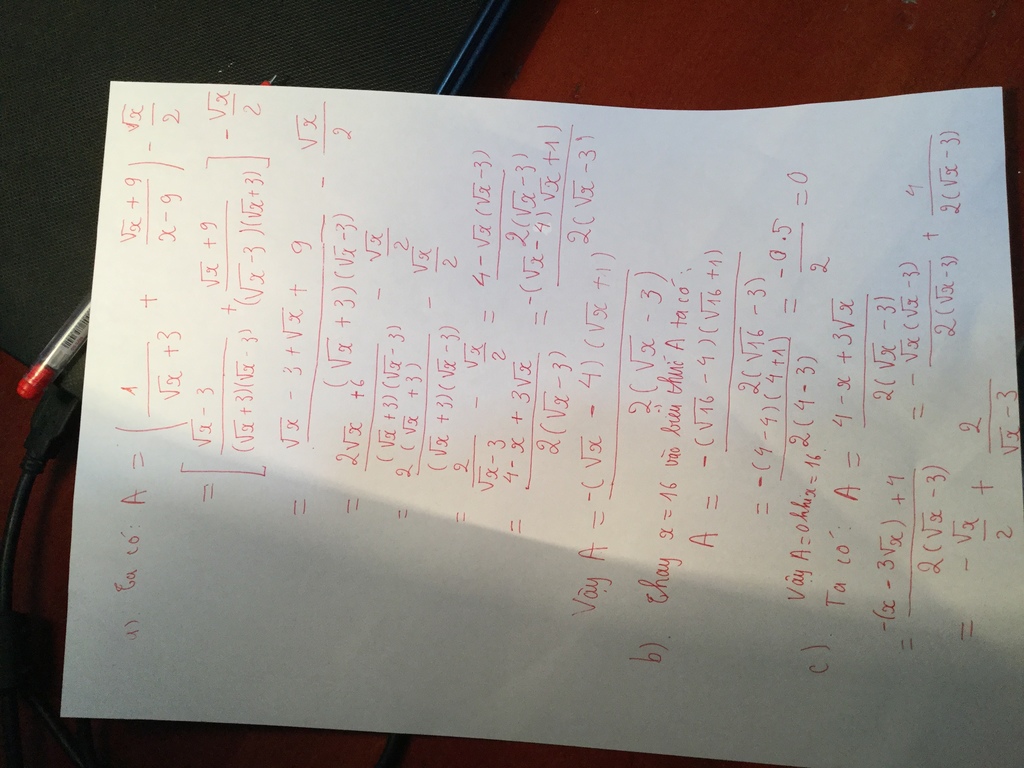 a). Ta có: A = ( 1/(√x+3) + (√x+9)/(x-9) ) - √x/2
= [ (√x-3)/((√x+3)(√x-3)) + (√x+9)/((√x-3)(√x+3)) ] - √x/2
= (√x - 3 + √x + 9)/((√x+3)(√x-3)) - √x/2
= (2√x + 6)/((√x+3)(√x-3)) - √x/2
= 2(√x+3)/((√x+3)(√x-3)) - √x/2
= 2/(√x-3) - √x/2 = (4-√x(√x-3))/(2(√x-3))
= (4-x+3√x)/(2(√x-3)) = -(√x-4)(√x+1)/(2(√x-3))
Vậy A = -(√x - 4)(√x+1)/(2(√x-3))
b). Thay x = 16 vào biểu thức A ta có:
A = -(√16 - 4)(√16+1)/(2(√16-3))
= -(4-4)(4+1)/(2(4-3)) = -0.5/2 = 0
Vậy A=0 khi x=16
c) Ta có: A = (4-x+3√x)/(2(√x-3))
= (-(x-3√x)+4)/(2(√x-3)) = -√x(√x-3)/(2(√x-3)) + 4/(2(√x-3))
= -√x/2 + 2/(√x-3)